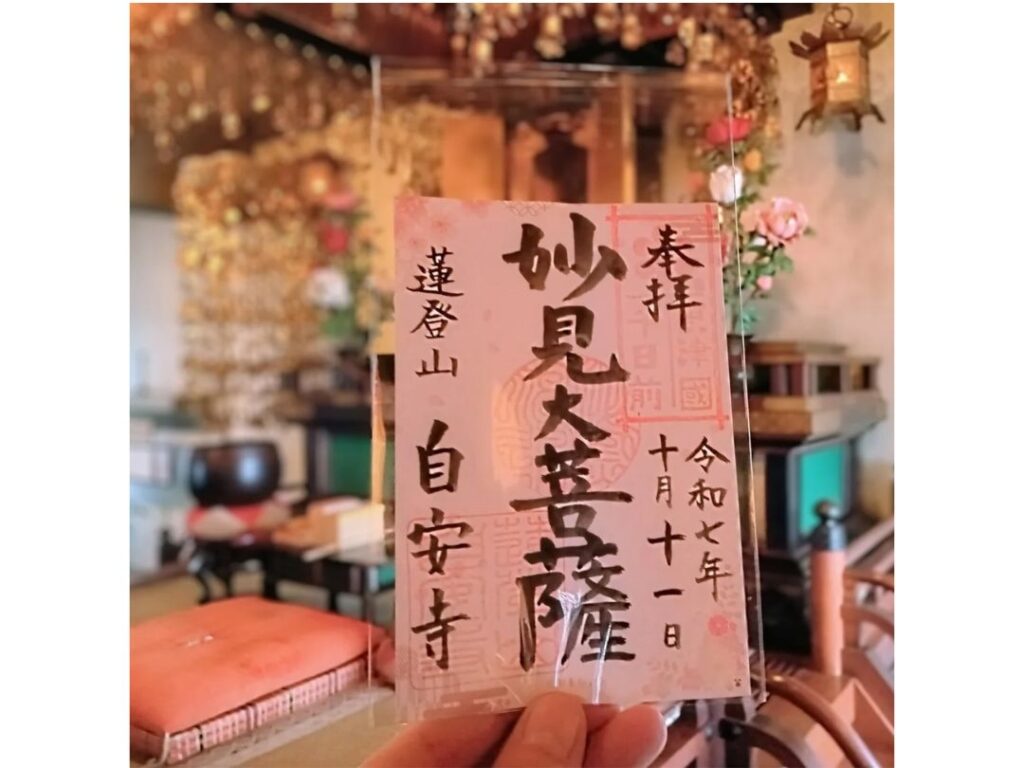 奉拝
令和七年
十月十一日
妙見大菩薩
蓮登山
自安寺